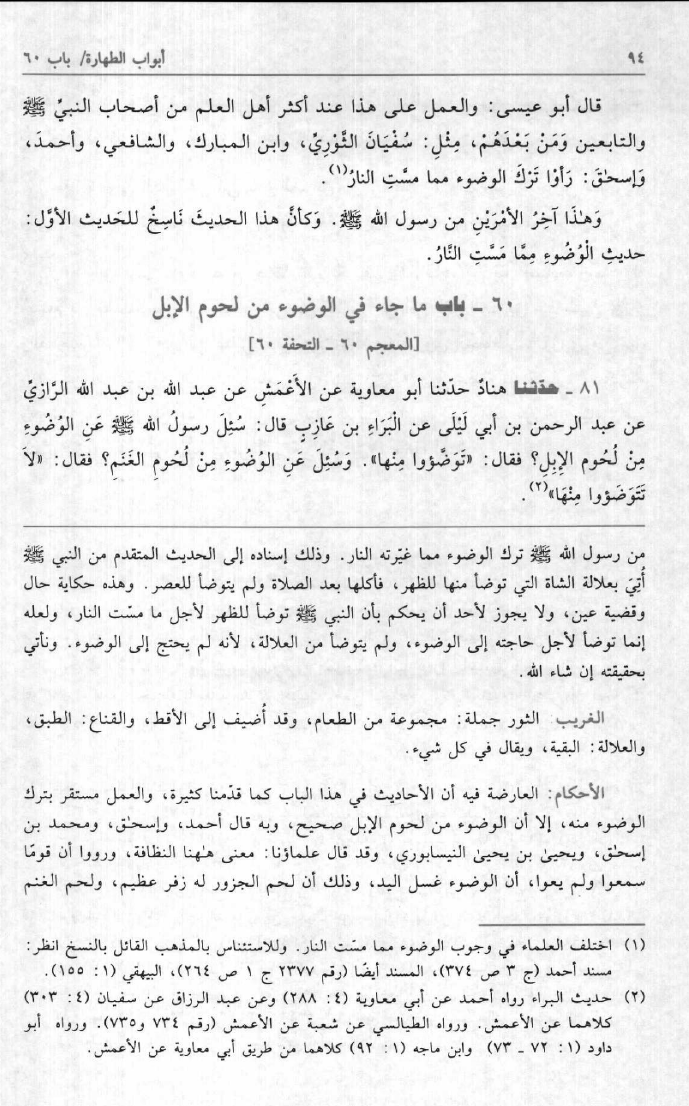 ٩٤
أبواب الطهارة/ باب ٦٠
قال أبو عيسى: والعمل على هذا عند أكثر أهل العلم من أصحاب النبيِّ ﷺ
والتابعين وَمَنْ بَعْدَهُمْ، مِثْلِ: سُفْيَانَ الثَّوْرِيِّ، وابن المبارك، والشافعي، وأحمدَ،
وَإسحٰقَ: رَأَوْا تَرْكَ الوضوء مما مسَّتِ النارُ(١).
وَهٰذَا آخِرُ الأمْرَيْنِ من رسول الله ﷺ. وَكأنَّ هذا الحديثَ نَاسِخٌ للحَديث الأوَّل:
حديثِ الْوُضُوءِ مِمَّا مَسَّتِ النَّارُ.
٦٠ ـ باب ما جاء في الوضوء من لحوم الإبل
[المعجم ٦٠ ـ التحفة ٦٠]
٨١ ـ حدّثنا هنادٌ حدّثنا أبو معاوية عن الأَعْمَشِ عن عبد الله بن عبد الله الرَّازيِّ
عن عبد الرحمن بن أبي لَيْلَى عن الْبَرَاءِ بن عَازِبٍ قال: سُئِلَ رسولُ الله ﷺ عَنِ الوُضُوءِ
مِنْ لُحُوم الإبِلِ؟ فقال: «تَوَضَّؤوا مِنْها». وَسُئِلَ عَنِ الوُضُوءِ مِنْ لُحُومِ الغَنَمِ؟ فقال: «لاَ
تَتَوَضَؤوا مِنْهَا»(٢).
من رسول الله ﷺ ترك الوضوء مما غيّرته النار. وذلك إسناده إلى الحديث المتقدم من النبي ﷺ
أُتِيَ بعلالة الشاة التي توضأ منها للظهر، فأكلها بعد الصلاة ولم يتوضأ للعصر. وهذه حكاية حال
وقضية عين، ولا يجوز لأحد أن يحكم بأن النبي ﷺ توضأ للظهر لأجل ما مسّت النار، ولعله
إنما توضأ لأجل حاجته إلى الوضوء، ولم يتوضأ من العلالة، لأنه لم يحتج إلى الوضوء. ونأتي
بحقيقته إن شاء الله.
الغريب: الثور جملة: مجموعة من الطعام، وقد أُضيف إلى الأقط، والقناع: الطبق،
والعلالة: البقية، ويقال في كل شيء.
الأحكام: العارضة فيه أن الأحاديث في هذا الباب كما قدّمنا كثيرة، والعمل مستقر بترك
الوضوء منه، إلا أن الوضوء من لحوم الإبل صحيح، وبه قال أحمد، وإسحـٰق، ومحمد بن
إسحـٰق، ويحيىٰ بن يحيىٰ النيسابوري، وقد قال علماؤنا: معنى هـٰهنا النظافة، ورووا أن قومًا
سمعوا ولم يعوا، أن الوضوء غسل اليد، وذلك أن لحم الجزور له زفر عظيم، ولحم الغنم
(١) اختلف العلماء في وجوب الوضوء مما مسّت النار. وللاستئناس بالمذهب القائل بالنسخ انظر:
مسند أحمد (ج ٣ ص ٣٧٤)، المسند أيضًا (رقم ٢٣٧٧ ج ١ ص ٢٦٤)، البيهقي (١: ١٥٥).
(٢) حديث البراء رواه أحمد عن أبي معاوية (٤: ٢٨٨) وعن عبد الرزاق عن سفيان (٤: ٣٠٣)
كلاهما عن الأعمش. ورواه الطيالسي عن شعبة عن الأعمش (رقم ٧٣٤ و٧٣٥). ورواه أبو
داود (١: ٧٢ ـ ٧٣) وابن ماجه (١: ٩٢) كلاهما من طريق أبي معاوية عن الأعمش.